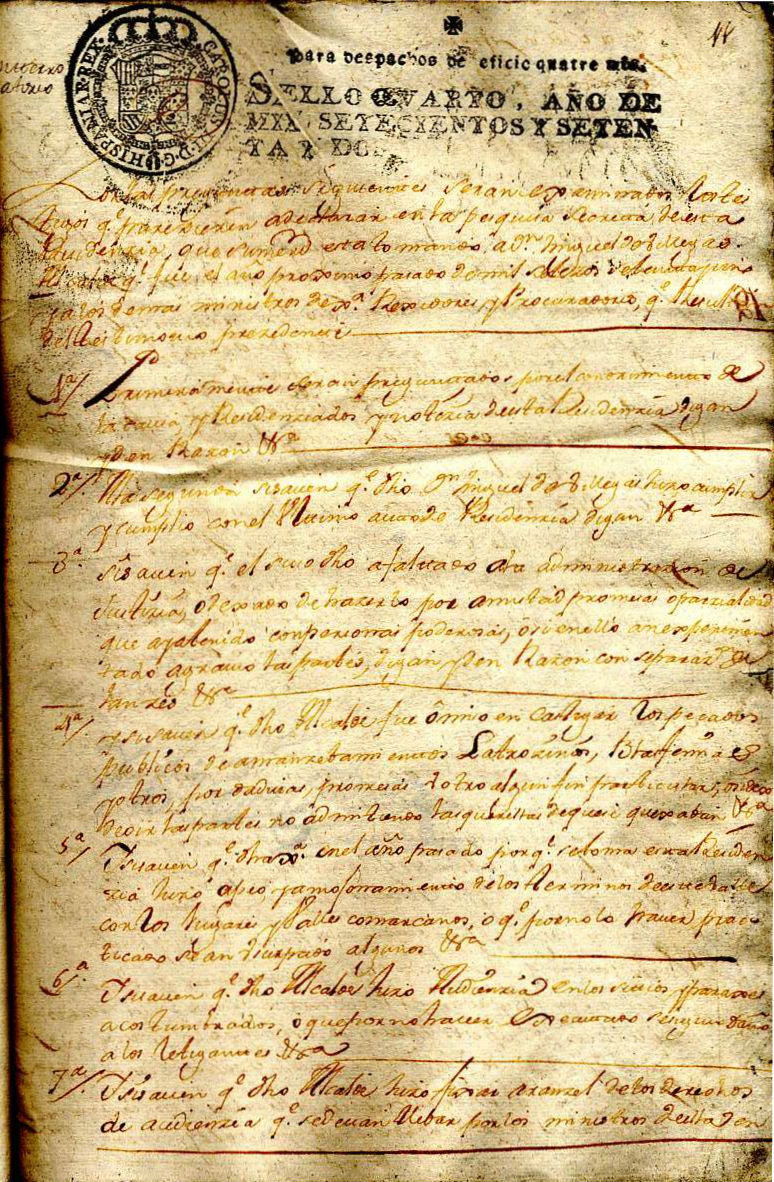 44
✠
para despachos de oficio quatro mrs.
SELLO QVARTO, AÑO DE
MIL SETECIENTOS Y SETEN-
TA Y DOS
CAROLUS III D G HISPANIAR REX
Interro
atorio
Por las preguntas siguientes seran examinados los tes
tigos q.e parezieren a declarar en la pesquisa secreta de esta
Residenzia, que su mrd esta tomando a Dn Miguel de Villegas
Alcalde q.e fue el año proximo pasado de mil setezos setenta y uno
y a los demas ministros de Rexidores y Procuradores, q.e Result
del testimonio prezedente
1a/ Primeramente seran preguntados por el conozimiento de
la causa, y Residenziados y notizia de esta Residenzia digan
y den Razon &a
2a/. A la segunda si saven q.e dho Dn Miguel de Villegas hizo cumplir
y cumplio con el Ultimo auto de Residenzia digan &a
3a. Si saven q.e el suso dho a faltado a la administrazion de
Justizia, o dexado de hazerlo por amistad promesas o parzialidad
que aya tenido con personas poderosas, o si en ello an experimen
tado agravio las partes, digan y den Razon con separazn de
lanzes &a
4a/. Y si saven q.e dho Alcalde fue omiso en castigar los pecados
publicos de amanzebamientos Latrozinios, Blasfemias
y otros, por dadivas, promesas u otro algun fin particular, o si dexo
de oir las partes no admitiendo las querellas de que se quexaban &a
5a/ Y si saven q.e dha en el año pasado por q.e se toma esta Residen
zia hizo apeo, y amojonamiento de los terminos de este Valle
con los lugares y Valles comarcanos, o q.e por no lo haver prac
ticado se an Usurpado algunos &a
6a/. Y si saven q.e dho Alcalde hizo Audienzia en los sitios, y parajes
acostumbrados, o que por no haver Executado se siguio daño
a los letigantes &a
7a/. Y si saven q.e dho Alcalde hizo fixar aranzel de los derechos
de audienzia q.e se devan llebar por los ministros de ella en